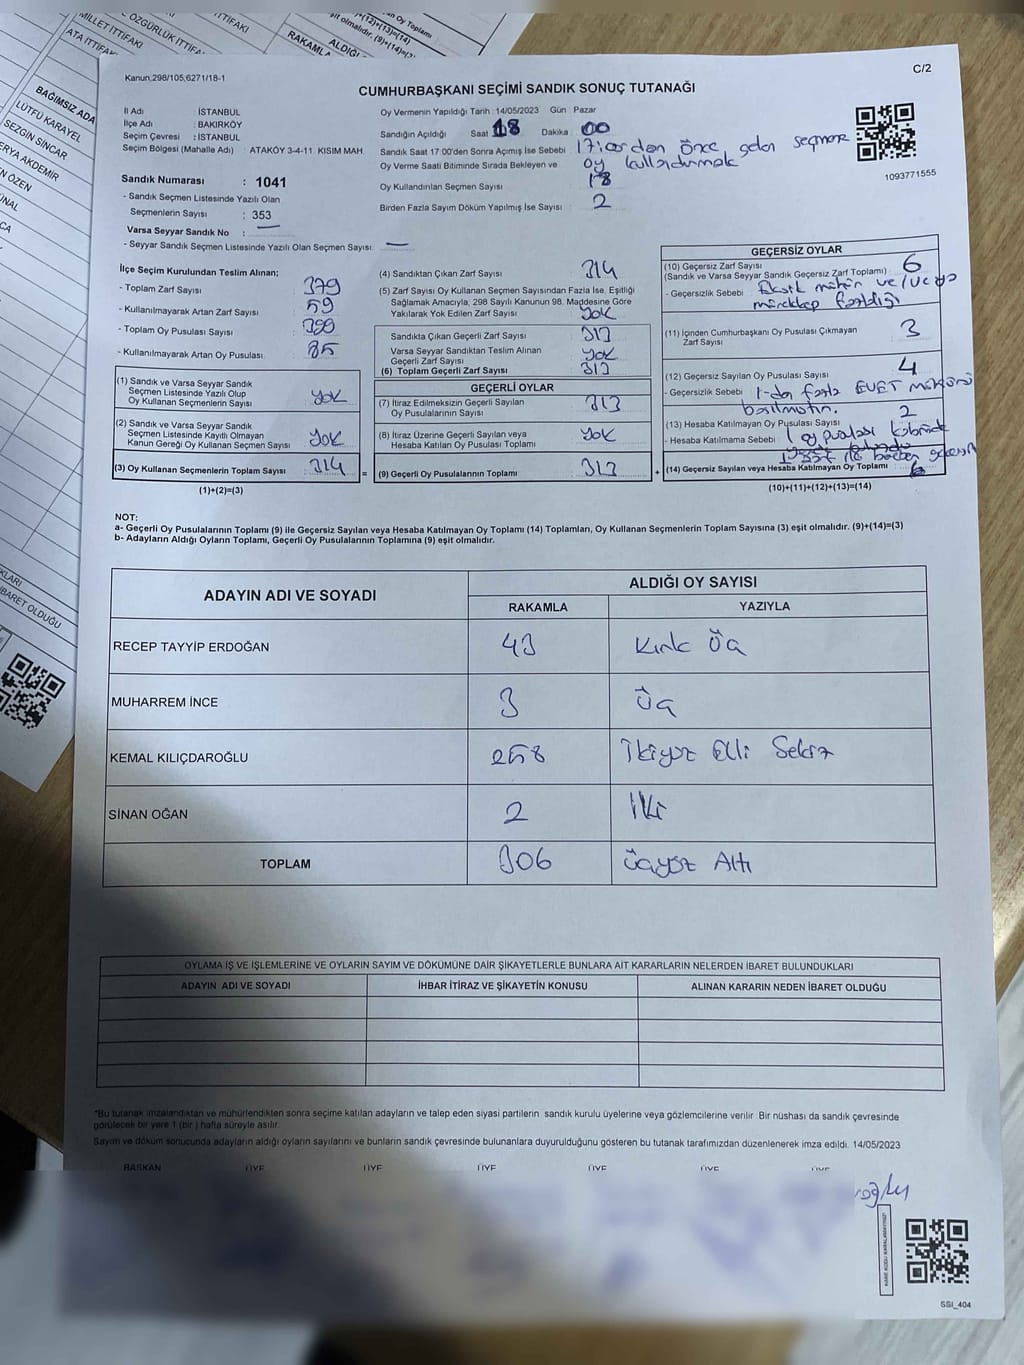 MİLLET İTTİFAKI
ATA İTTİFAKI
ÖZGÜRLÜK İTTİFAKI
RAKAMLA
ALDIĞI
BAĞIMSIZ ADA
LÜTFÜ KARAYEL
SEZGİN SİNCAR
ERYA AKDEMİR
N ÖZEN
ÜNAL
CA
KLARI
İBARET OLDUĞU
Kanun:298/105,6271/18-1
C/2
CUMHURBAŞKANI SEÇİMİ SANDIK SONUÇ TUTANAĞI
İl Adı : İSTANBUL
İlçe Adı : BAKIRKÖY
Seçim Çevresi : İSTANBUL
Seçim Bölgesi (Mahalle Adı) : ATAKÖY 3-4-11. KISIM MAH.
Sandık Numarası : 1041
- Sandık Seçmen Listesinde Yazılı Olan
Seçmenlerin Sayısı : 353
Varsa Seyyar Sandık No : —
- Seyyar Sandık Seçmen Listesinde Yazılı Olan Seçmen Sayısı: —
Oy Vermenin Yapıldığı Tarih : 14/05/2023 Gün : Pazar
Sandığın Açıldığı Saat : 18 Dakika : 00
Sandık Saat 17:00'den Sonra Açımış İse Sebebi : 17:00 den önce gelen seçmene
Oy Verme Saati Bitiminde Sırada Bekleyen ve oy kullandırmak
Oy Kullandırılan Seçmen Sayısı 18
Birden Fazla Sayım Döküm Yapılmış İse Sayısı : 2
1093771555
İlçe Seçim Kurulundan Teslim Alınan;
- Toplam Zarf Sayısı : 379
- Kullanılmayarak Artan Zarf Sayısı : 59
- Toplam Oy Pusulası Sayısı : 399
- Kullanılmayarak Artan Oy Pusulası : 85
(1) Sandık ve Varsa Seyyar Sandık
Seçmen Listesinde Yazılı Olup
Oy Kullanan Seçmenlerin Sayısı : YOK
(2) Sandık ve Varsa Seyyar Sandık
Seçmen Listesinde Kayıtlı Olmayan
Kanun Gereği Oy Kullanan Seçmen Sayısı : YOK
(3) Oy Kullanan Seçmenlerin Toplam Sayısı : 314 =
(1)+(2)=(3)
(4) Sandıktan Çıkan Zarf Sayısı : 314
(5) Zarf Sayısı Oy Kullanan Seçmen Sayısından Fazla İse, Eşitliği
Sağlamak Amacıyla; 298 Sayılı Kanunun 98. Maddesine Göre
Yakılarak Yok Edilen Zarf Sayısı : YOK
Sandıkta Çıkan Geçerli Zarf Sayısı : 313
Varsa Seyyar Sandıktan Teslim Alınan
Geçerli Zarf Sayısı : YOK
(6) Toplam Geçerli Zarf Sayısı : 313
GEÇERLİ OYLAR
(7) İtiraz Edilmeksizin Geçerli Sayılan
Oy Pusulalarının Sayısı : 313
(8) İtiraz Üzerine Geçerli Sayılan veya
Hesaba Katılan Oy Pusulası Toplamı : YOK
(9) Geçerli Oy Pusulalarının Toplamı : 313 +
GEÇERSİZ OYLAR
(10) Geçersiz Zarf Sayısı : 6
(Sandık ve Varsa Seyyar Sandık Geçersiz Zarf Toplamı)
- Geçersizlik Sebebi : Eksik mühür ve/veya
mürekkep fazlalığı
(11) İçinden Cumhurbaşkanı Oy Pusulası Çıkmayan
Zarf Sayısı : 3
(12) Geçersiz Sayılan Oy Pusulası Sayısı : 4
- Geçersizlik Sebebi : 1-den fazla EVET mührü
basılmıştır.
(13) Hesaba Katılmayan Oy Pusulası Sayısı : 2
- Hesaba Katılmama Sebebi : 1 oy pusulası
(14) Geçersiz Sayılan veya Hesaba Katılmayan Oy Toplamı : 6
(10)+(11)+(12)+(13)=(14)
NOT:
a- Geçerli Oy Pusulalarının Toplamı (9) ile Geçersiz Sayılan veya Hesaba Katılmayan Oy Toplamı (14) Toplamları, Oy Kullanan Seçmenlerin Toplam Sayısına (3) eşit olmalıdır. (9)+(14)=(3)
b- Adayların Aldığı Oyların Toplamı, Geçerli Oy Pusulalarının Toplamına (9) eşit olmalıdır.
ADAYIN ADI VE SOYADI
ALDIĞI OY SAYISI
RAKAMLA YAZIYLA
RECEP TAYYİP ERDOĞAN 43 Kırk Üç
MUHARREM İNCE 3 Üç
KEMAL KILIÇDAROĞLU 258 İkiyüz Elli Sekiz
SİNAN OĞAN 2 İki
TOPLAM 306 Üçyüz Altı
OYLAMA İŞ VE İŞLEMLERİNE VE OYLARIN SAYIM VE DÖKÜMÜNE DAİR ŞİKAYETLERLE BUNLARA AİT KARARLARIN NELERDEN İBARET BULUNDUKLARI
ADAYIN ADI VE SOYADI İHBAR İTİRAZ VE ŞİKAYETİN KONUSU ALINAN KARARIN NEDEN İBARET OLDUĞU
"Bu tutanak imzalandıktan ve mühürlendikten sonra seçime katılan adayların ve talep eden siyasi partilerin sandık kurulu üyelerine veya gözlemcilerine verilir. Bir nüshası da sandık çevresinde
görülecek bir yere 1 (bir ) hafta süreyle asılır.
Sayım ve döküm sonucunda adayların aldığı oyların sayılarını ve bunların sandık çevresinde bulunanlara duyurulduğunu gösteren bu tutanak tarafımızdan düzenlenerek imza edildi. 14/05/2023
BAŞKAN ÜYE ÜYE ÜYE ÜYE ÜYE ÜYE
SSI_404